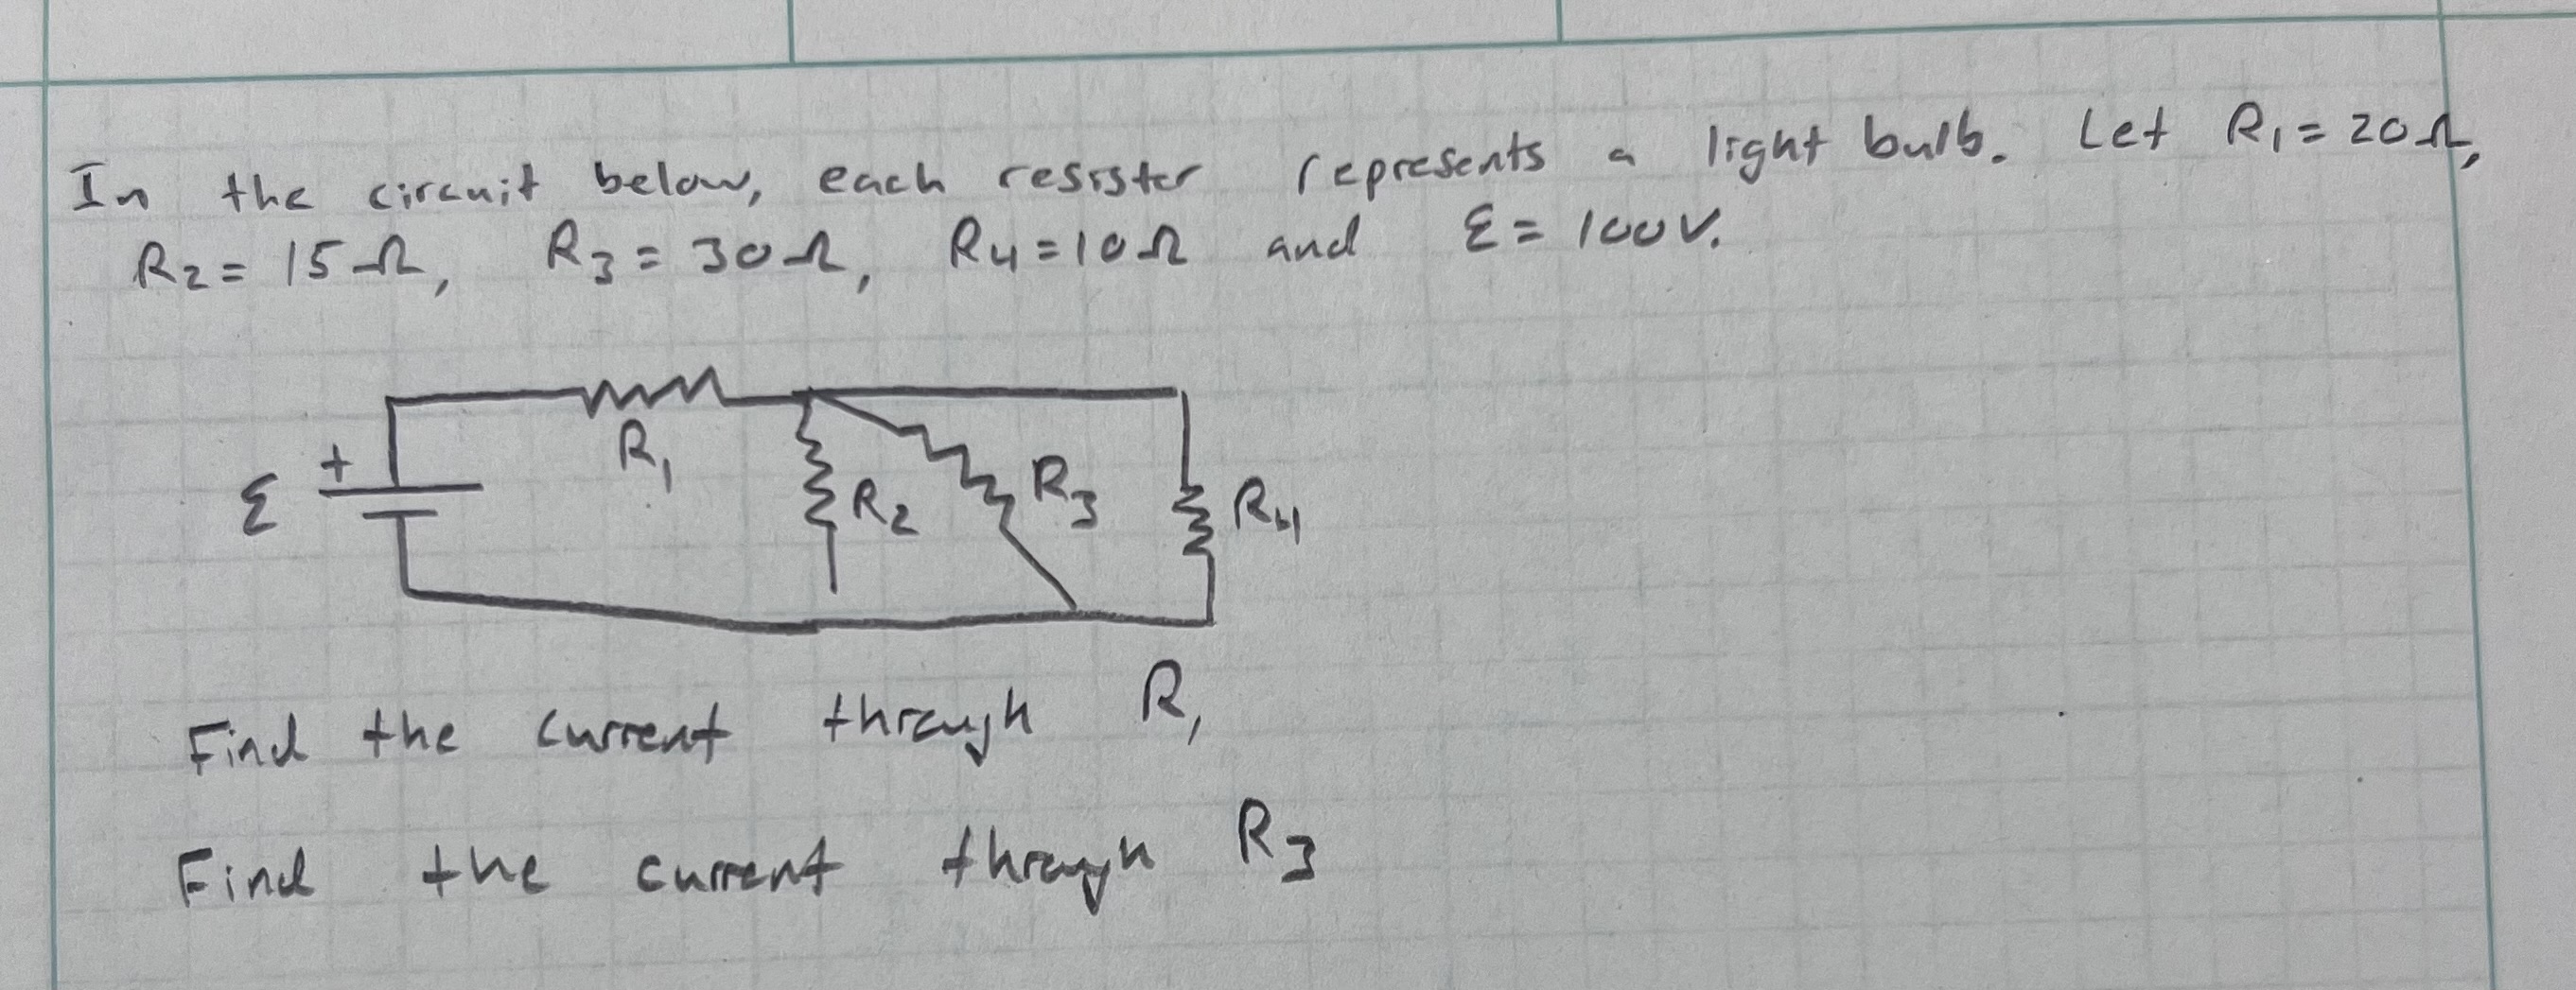 In the circuit below, each resister represents a light bulb. Let R₁ = 20Ω,
R₂ = 15Ω, R₃ = 30Ω, R₄ = 10Ω and Ɛ = 100V.
+
R₁
Ɛ
R₂
R₃
R₄
Find the current through R₁
Find the current through R₃